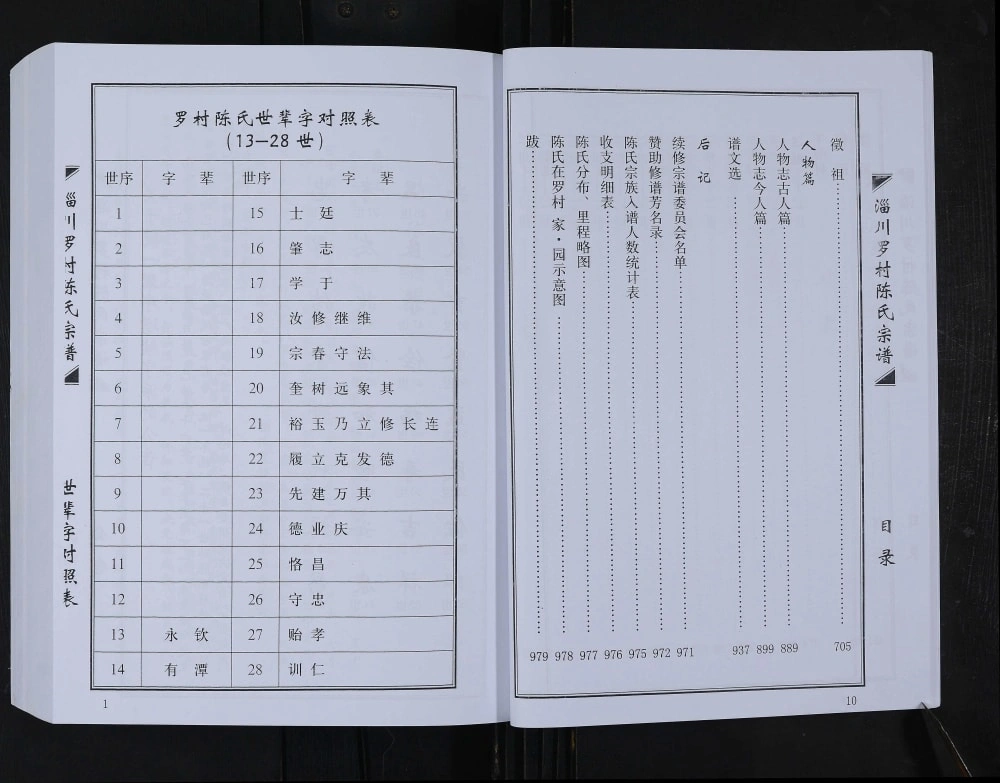 淄川罗村陈氏宗谱
目录
徵祖 705
人物篇
人物志古人篇 889
人物志今人篇 899
谱文选 937
后记
续修宗谱委员会名单 971
赞助修谱芳名录 972
陈氏宗族入谱人数统计表 975
收支明细表 976
陈氏分布、里程略图 977
陈氏在罗村 家·园示意图 978
跋 979
10
罗村陈氏世辈字对照表
(13—28 世)
世序 字 辈 世序 字 辈
1 15 士 廷
2 16 肇 志
3 17 学 于
4 18 汝 修 继 维
5 19 宗 春 守 法
6 20 奎 树 远 象 其
7 21 裕 玉 乃 立 修 长 连
8 22 履 立 克 发 德
9 23 先 建 万 其
10 24 德 业 庆
11 25 恪 昌
12 26 守 忠
13 永 钦 27 贻 孝
14 有 潭 28 训 仁
淄川罗村陈氏宗谱
世辈字对照表
1